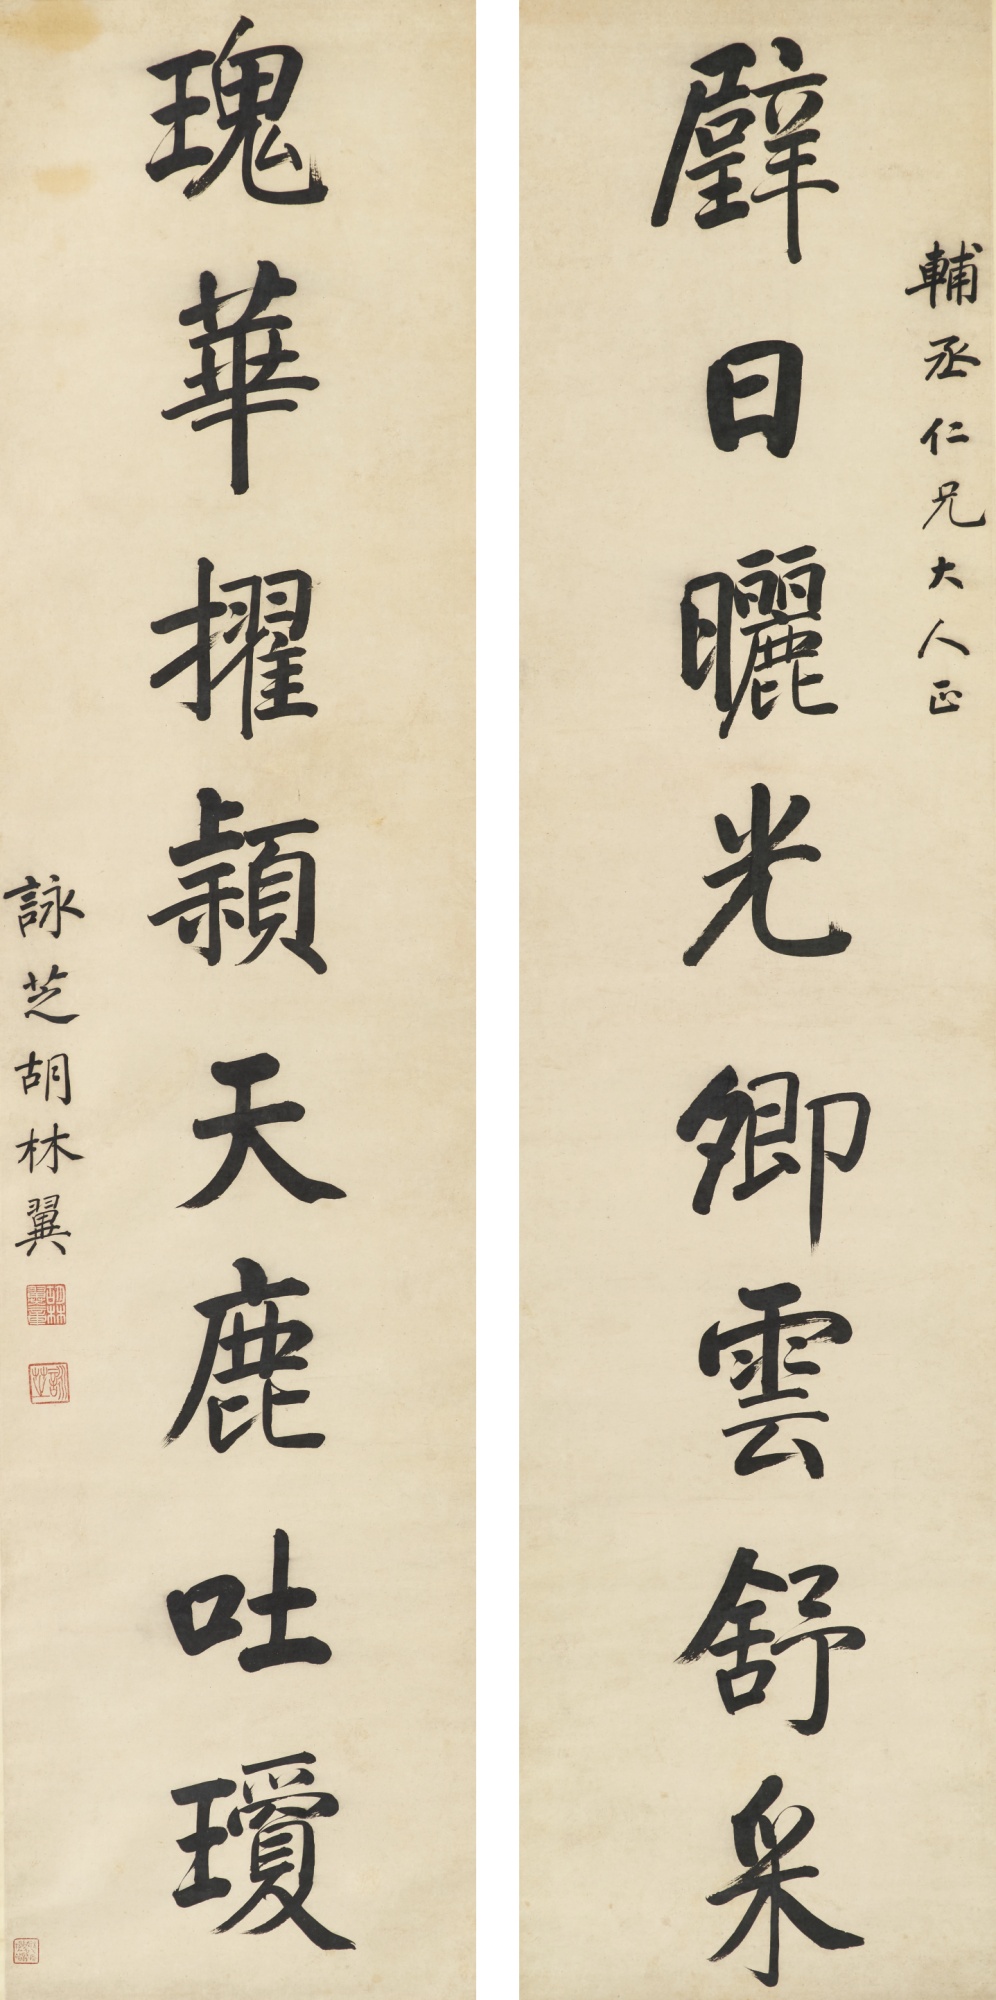 輔丞仁兄大人正
璧日曬光卿雲舒采
瑰華擢頴天鹿吐瓊
詠芝胡林翼
詠芝